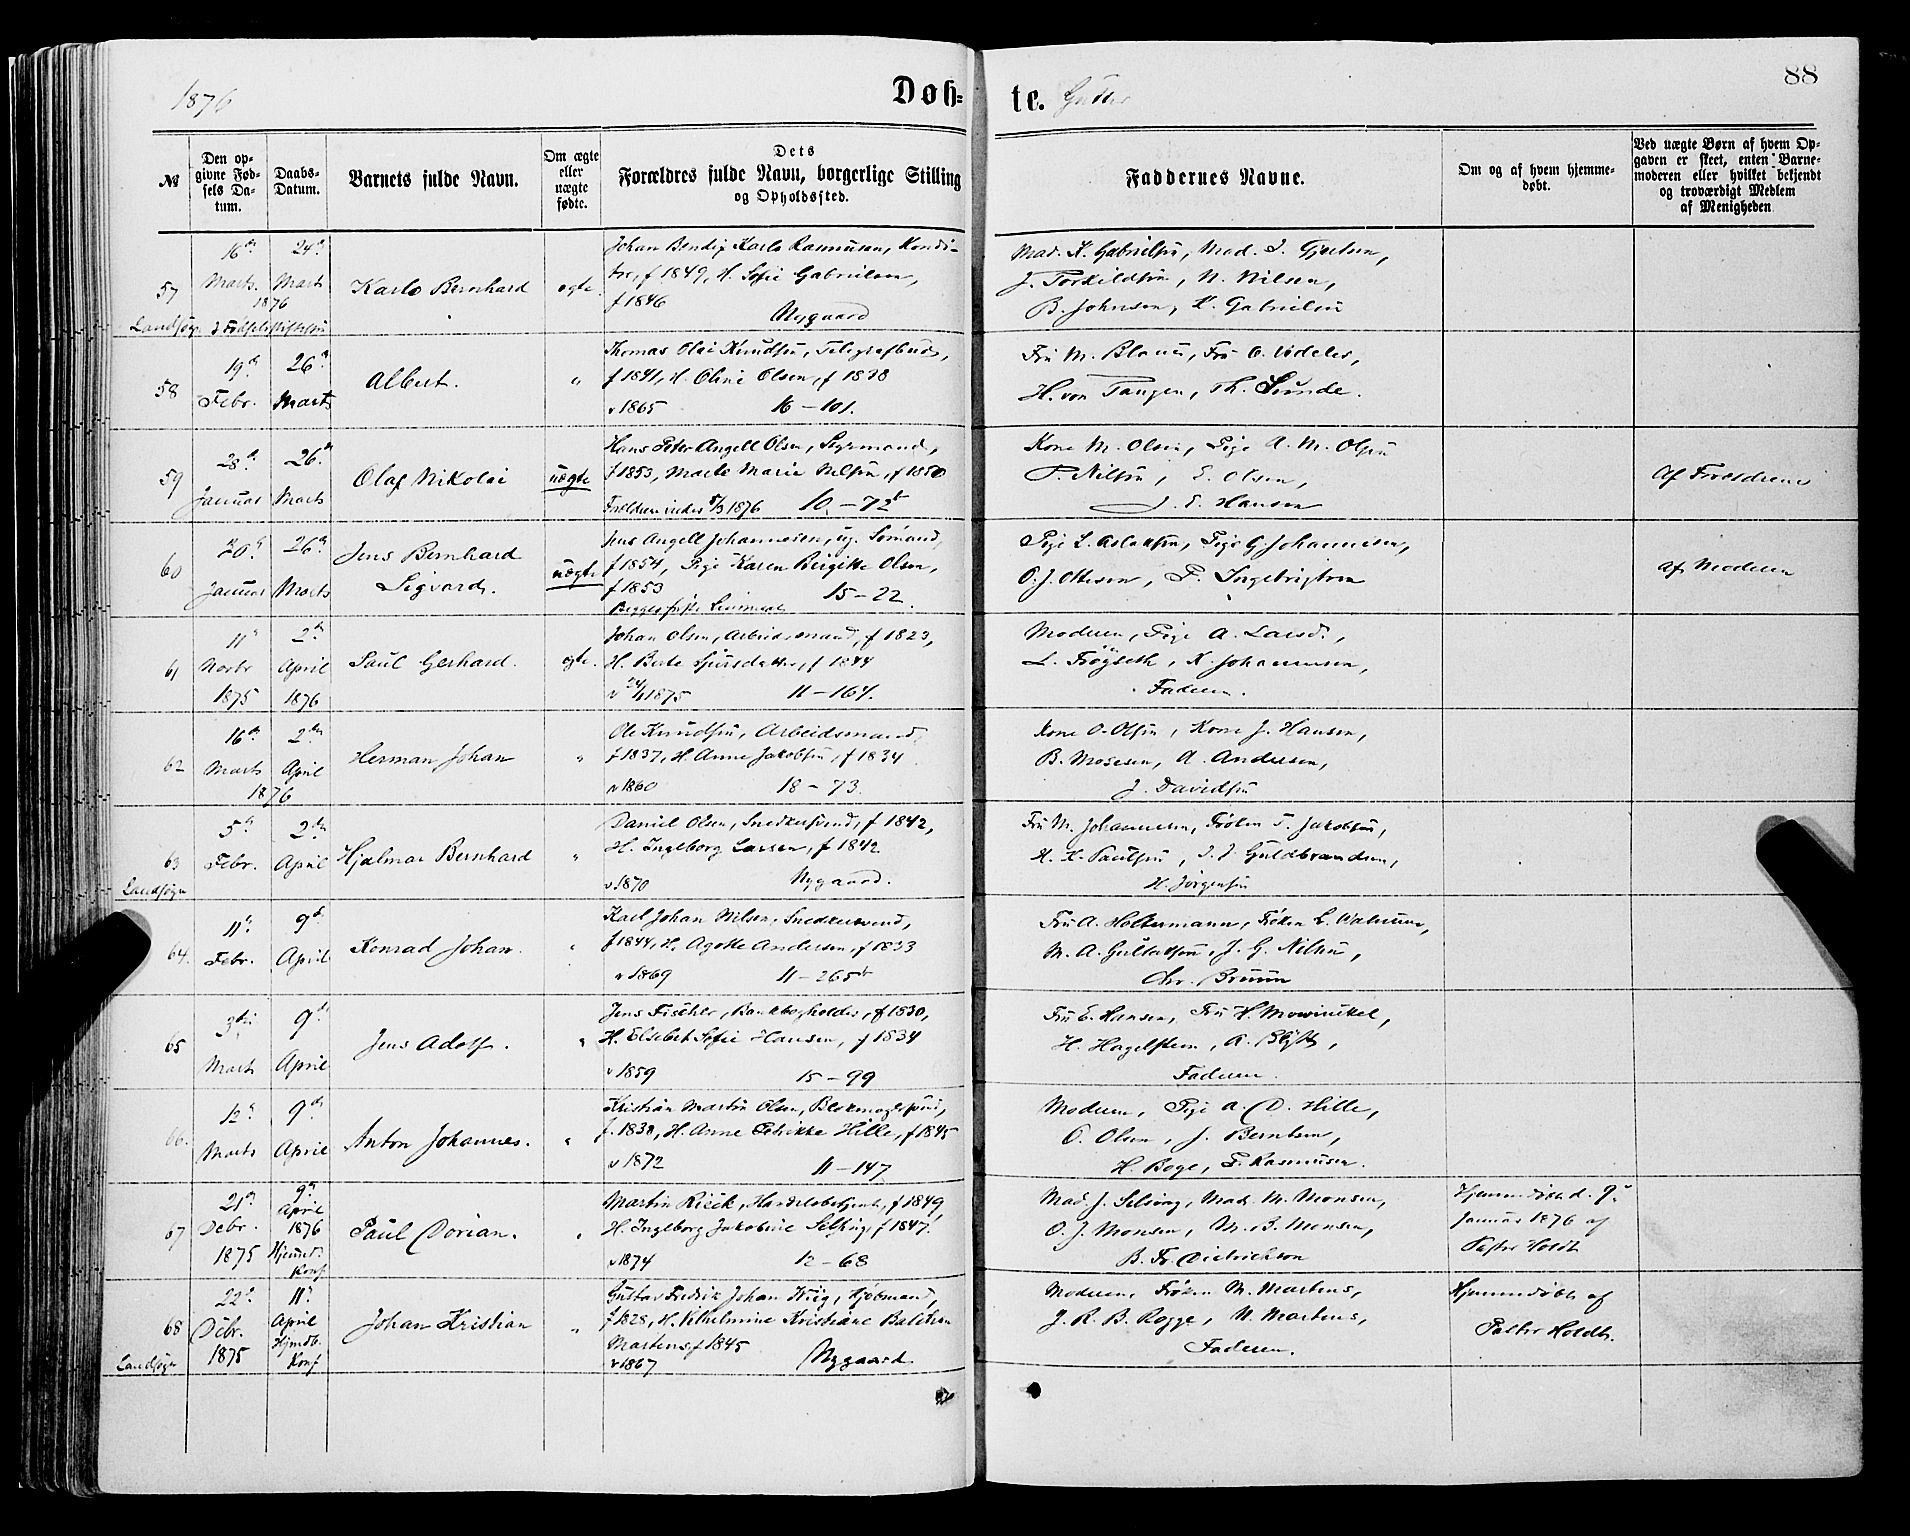 1876
Døb=
te. Gutter
88
№
Den op=
givne Fød=
sels Da=
tum.
Daabs=
Datum.
Barnets fulde Navn.
Om ægte
eller
uægte
fødte.
Dets
Forældres fulde Navn, borgerlige Stilling
og Opholdssted.
Faddernes Navne.
Om og af hvem hjemme=
døbt.
Ved uægte Børn af hvem Op=
gaven er skeet, enten Barne=
moderen eller hvilket bekjendt
og troværdigt Medlem
af Menigheden
57
Landsogn
16de
Marts
24de
Marts
1876
Karlo Bernhard
egte.
Johan Bendix Karlo Rasmusen, Kondi=
tor, f 1849, H. Sofie Gabrielsen,
f 1846
Nygaard
Mad. K. Gabrielsen, Mad. J. Gjertsen,
J. Torkildsen, N. Nilsen,
B. Johnsen, K. Gabrielsen
58
19de
Febr.
26de
Marts
Albert.
"
Thomas Olai Knudsen, Telegrafbud,
f 1841, H. Oline Olsen, f 1838
v 1865 16 – 101.
Fru M. Blauu, Fru O. Vedeler,
H. von Tangen, Th. Sunde.
59
28de
Januar
26de
Marts
Olaf Nikolai
uægte
Hans Peter Angell Olsen, Styrmand,
f 1853, Marte Marie Nilsen, f 1850
Forældrene viedes 5/3 1876 10 – 72b
Kone M. Olsen, Pige A. M. Olsen
P. Nilsen, E. Olsen,
J. E. Hansen
Af Forældrene
60
20de
Januar
26de
Marts
Jens Bernhard
Sigvard.
uægte
Jens Angell Johannesen, ug. Sømand,
f 1854, Pige Karen Birgitte Olsen,
f 1853
Begges første Leiermaal 15 – 22.
Pige L. Aslaksen, Pige G. Johannesen,
O. J. Ottesen, P. Ingebrigtsen
Af Moderen
61
11te
Novbr
1875
2den
April
1876
Paul Gerhard.
egte.
Johan Olsen, Arbeidsmand, f 1823,
H. Berte Sjursdatter, f 1844
v 24/1 1875 11 – 164.
Moderen, Pige A. Larsd.,
L. Frøyseth, K. Johannesen,
Faderen.
62
16de
Marts
2den
April
1876
Herman Johan
"
Ole Knudsen, Arbeidsmand,
f 1837, H. Anne Jakobsen, f 1834
v 1860 18 – 73.
Kone O. Olsen, Kone J. Hansen,
B. Mosesen, A. Andersen,
J. Davidsen
63
Landsogn
5te
Febr.
2den
April
Hjalmar Bernhard
"
Daniel Olsen, Snedkersvend, f 1842,
H. Ingeborg Larsen, f 1842
v 1870 Nygaard.
Fru M. Johannesen, Frøken T. Jakobsen,
H. K. Paulsen, J. J. Guldbrandsen,
H. Jørgensen
64.
11te
Febr.
9de
April
Konrad Johan.
"
Karl Johan Nilsen, Snedkersvend,
f 1844, H. Agotte Andersen, f 1833
v 1869 11 – 265b
Fru A. Holtermann, Frøken L.
M. A. Gullaksen, J. G. Nilsen,
Chr. Bruun
65
3die
Marts
9de
April
Jens Adolf.
"
Jens Fischer, Bankbogholder, f 1830,
H. Elsebet Sofie Hansen, f 1834
v 1859 15 – 99
Fru E. Hansen, Fru H. Mowinckel,
H. Hagelsteen, A. Blytt,
Faderen.
66.
12te
Marts
9de
April
Anton Johannes.
"
Kristian Martin Olsen, Blokmagersvend,
f. 1838, H. Anne Petrikke Hille, f 1845
v 1872 11 – 147
Moderen, Pige A. D. Hille,
O. Olsen, J. Berntsen,
H. Boge, F. Rasmusen.
67
21de
Debr.
1875
9de
April
1876
Hjemd.
Konf.
Paul Dorian.
"
Martin Rieck, Handelsbetjent, f 1849,
H. Ingeborg Jakobine Selsing, f 1847.
v 1874 12 – 68
Mad. J. Selsing, Mad. M. Monsen,
O. J. Monsen, M. B. Monsen,
B. Fr. Didrichson
Hjemmedøbt d. 9de
Januar 1876 af
Pastor Holdt
68
Landsogn
22de
Debr.
1875
11te
April
Hjmdb.
Konf
Johan Kristian
"
Gustav Fredrik Johan Krüg, Kjøbmand,
f 1828, H. Vilhelmine Kristiane Balchen
Martens f 1845
v 1867 Nygaard
Moderen, Frøken M. Martens,
J. R. B. Rogge, N. Martens,
Faderen.
Hjemmedøbt af
Pastor Holdt.